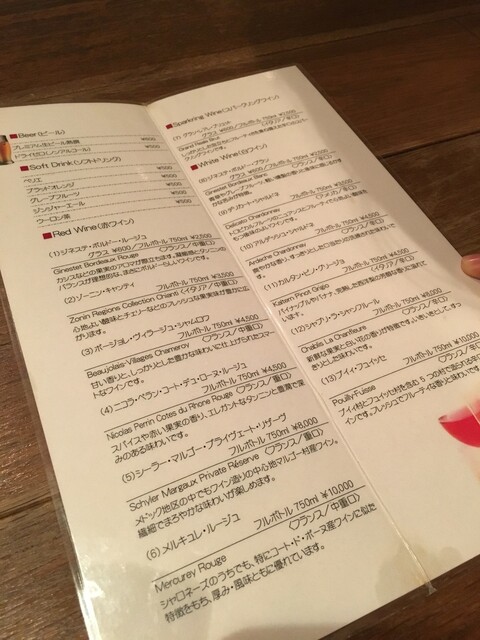 ■Beer(ビール)
プレミアム生ビール熟撰 ¥600
ドライゼロ(ノンアルコール) ¥500
■Soft Drink(ソフトドリンク)
ペリエ ¥500
ブラッドオレンジ ¥500
グレープフルーツ ¥500
ジンジャーエール ¥500
ウーロン茶 ¥500
■Red Wine(赤ワイン)
(1)ジネステ・ボルドー・ルージュ
グラス ¥600/フルボトル 750ml ¥2,500
Ginestet Bordeaux Rouge (フランス/中重口)
カシスなどの果実のアロマが際立ちます。凝縮感とタンニンの
バランスが理想的な、まさにボルドーらしいワインです。
(2)ゾーニン・キャンティ
フルボトル 750ml ¥3,500
Zonin Regions Collection Chianti (イタリア/中重口)
心地よい酸味とチェリーなどのフレッシュな果実味が豊かに広
がります。
(3)ボージョレ・ヴィラージュ・シャムロワ
フルボトル 750ml ¥4,500
Beaujolais-Villages Chameroy (フランス/中重口)
甘い香りと、しっかりとした豊かな味わいに仕上げられたスマー
トなワインです。
(4)ニコラ・ペラン・コート・デュ・ローヌ・ルージュ
フルボトル 750ml ¥4,500
Nicolas Perrin Cotes du Rhone Rouge (フランス/重口)
スパイスや赤い果実の香り、エレガントなタンニンと豊潤で深
みのある味わいです。
(5)シーラー・マルゴー・プライヴェート・リザーヴ
フルボトル 750ml ¥8,000
Schyler Margaux Private Réserve (フランス/重口)
メドック地区の中でもワイン造りの中心地マルゴー村産ワイン。
繊細でまろやかな味わいが楽しめます。
(6)メルキュレ・ルージュ
フルボトル 750ml ¥10,000
Mercurey Rouge (フランス/中重口)
シャロネーズのうちでも、特にコート・ド・ボーヌ産ワインに似た
特徴をもち、厚み・風味ともに優れています。
■Sparkling Wine(スパークリングワイン)
(7)グラン・レアル・ブリュット
■White Wine(白ワイン)
(8)ジネステ・ボルドー・ブラン
グラス ¥600/フルボトル 750ml ¥2,500
Ginestet Bordeaux Blanc (フランス/辛口)
(9)デリカート・シャルドネ
Delicato Chardonnay
(10)アルデッシュ・シャルドネ
Ardeche Chardonnay
(11)カルタン・ピノ・グリージョ
(イタリア/辛口)
Kaltern Pinot Grigio
(12)シャブリ・ラ・シャンフルール
フルボトル 750ml
Chablis La Chanfleure (フランス/辛口)
新鮮な果実と白い花の香りが特徴です。いきいきとして、すっ
きりとした味わいです。
(13)プイィ・フュイッセ
フルボトル 750ml ¥10,000
Pouilly-Fuisse (フランス/辛口)
プイィ村とフュイッセ村を含む5つの村で造られる辛口